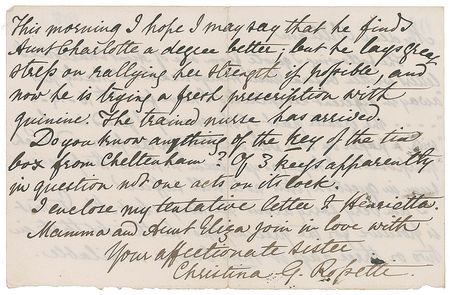 This morning I hope I may say that he finds
Aunt Charlotte a degree better; but he lays great
stress on rallying her strength if possible, and
now he is trying a fresh prescription with
quinine. The trained nurse has arrived.
Do you know anything of the key of the tin
box from Cheltenham? Of 3 keys apparently
in question not one acts on its lock.
I enclose my tentative letter to Henrietta.
Mamma and Aunt Eliza join in love with
Your affectionate sister
Christina G. Rossetti.